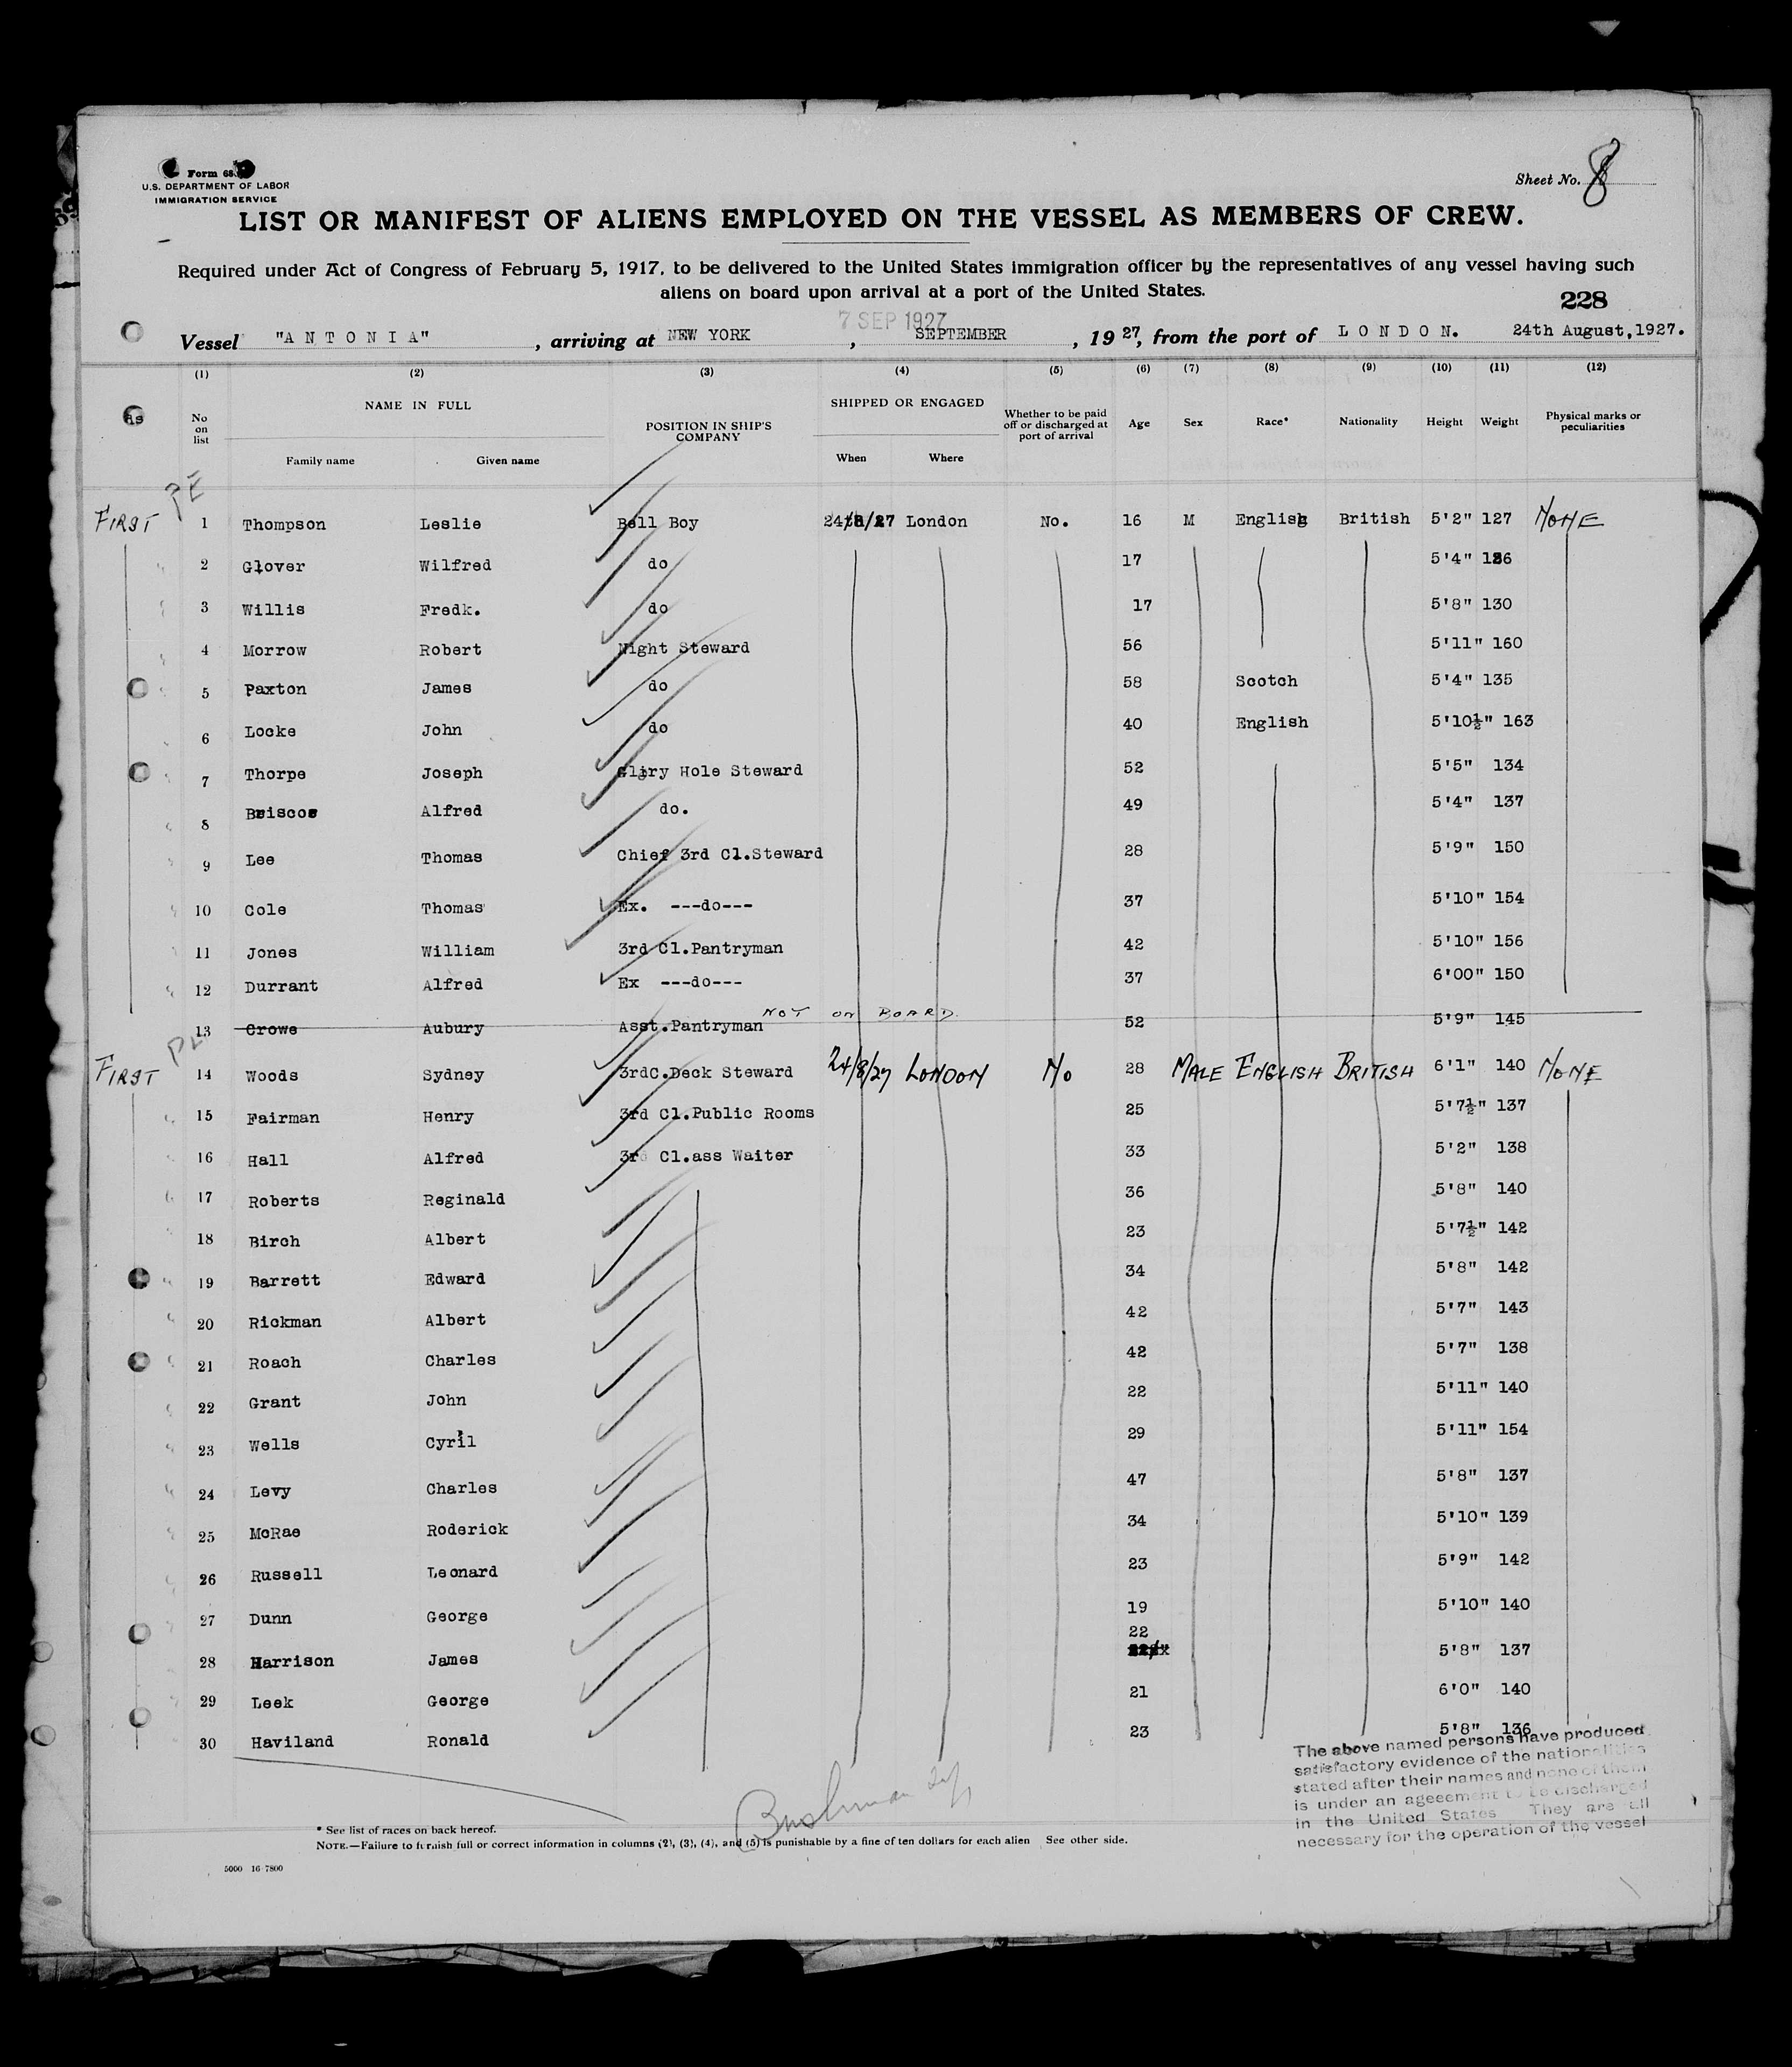 Form 68
U.S. DEPARTMENT OF LABOR
IMMIGRATION SERVICE
Sheet No. 8
LIST OR MANIFEST OF ALIENS EMPLOYED ON THE VESSEL AS MEMBERS OF CREW.
Required under Act of Congress of February 5, 1917, to be delivered to the United States immigration officer by the representatives of any vessel having such
aliens on board upon arrival at a port of the United States.
228
7 SEP 1927
Vessel "A N T O N I A" , arriving at NEW YORK , SEPTEMBER , 19 27, from the port of L O N D O N. 24th August, 1927.
(1) (2) (3) (4) (5) (6) (7) (8) (9) (10) (11) (12)
No on list NAME IN FULL Family name Given name POSITION IN SHIP'S COMPANY SHIPPED OR ENGAGED When Where Whether to be paid off or discharged at port of arrival Age Sex Race* Nationality Height Weight Physical marks or peculiarities
FIRST 1 Thompson Leslie Bell Boy 24/8/27 London No. 16 M English British 5'2" 127 NONE
2 Glover Wilfred do 17 5'4" 126
3 Willis Fredk. do 17 5'8" 130
4 Morrow Robert Night Steward 56 5'11" 160
5 Paxton James do 58 Scotch 5'4" 135
6 Locke John do 40 English 5'10½" 163
7 Thorpe Joseph Gliry Hole Steward 52 5'5" 134
8 Briscoe Alfred do. 49 5'4" 137
9 Lee Thomas Chief 3rd Cl.Steward 28 5'9" 150
10 Cole Thomas Ex. ---do--- 37 5'10" 154
11 Jones William 3rd Cl.Pantryman 42 5'10" 156
12 Durrant Alfred Ex ---do--- 37 6'00" 150
NOT ON BOARD
13 Crowe Aubury Asst.Pantryman 52 5'9" 145
FIRST 14 Woods Sydney 3rdC.Deck Steward 24/8/27 LONDON No 28 MALE ENGLISH BRITISH 6'1" 140 NONE
15 Fairman Henry 3rd Cl.Public Rooms 25 5'7½" 137
16 Hall Alfred 3rd Cl.ass Waiter 33 5'2" 138
17 Roberts Reginald 36 5'8" 140
18 Birch Albert 23 5'7½" 142
19 Barrett Edward 34 5'8" 142
20 Rickman Albert 42 5'7" 143
21 Roach Charles 42 5'7" 138
22 Grant John 22 5'11" 140
23 Wells Cyril 29 5'11" 154
24 Levy Charles 47 5'8" 137
25 McRae Roderick 34 5'10" 139
26 Russell Leonard 23 5'9" 142
27 Dunn George 19 5'10" 140
28 Harrison James 22 5'8" 137
29 Leek George 21 6'0" 140
30 Haviland Ronald 23 5'8" 136
The above named persons have produced
satisfactory evidence of the nationalities
stated after their names and none of them
is under an ageeement to be discharged
in the United States They are all
necessary for the operation of the vessel
* See list of races on back hereof.
NOTE.—Failure to furnish full or correct information in columns (2), (3), (4), and (5) is punishable by a fine of ten dollars for each alien See other side.
5000 16 7800